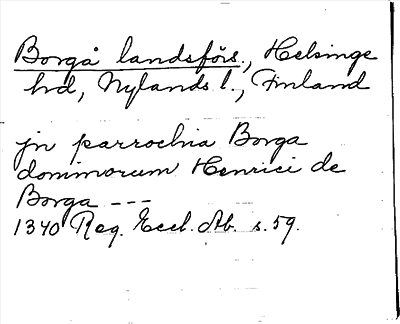 Borgå landsförs., Helsinge
hd, Nylands l., Finland
jn parrochia Borga
dominorum Henrici de
Borga ---
1340 Reg. Eccl. Ab. s. 59.